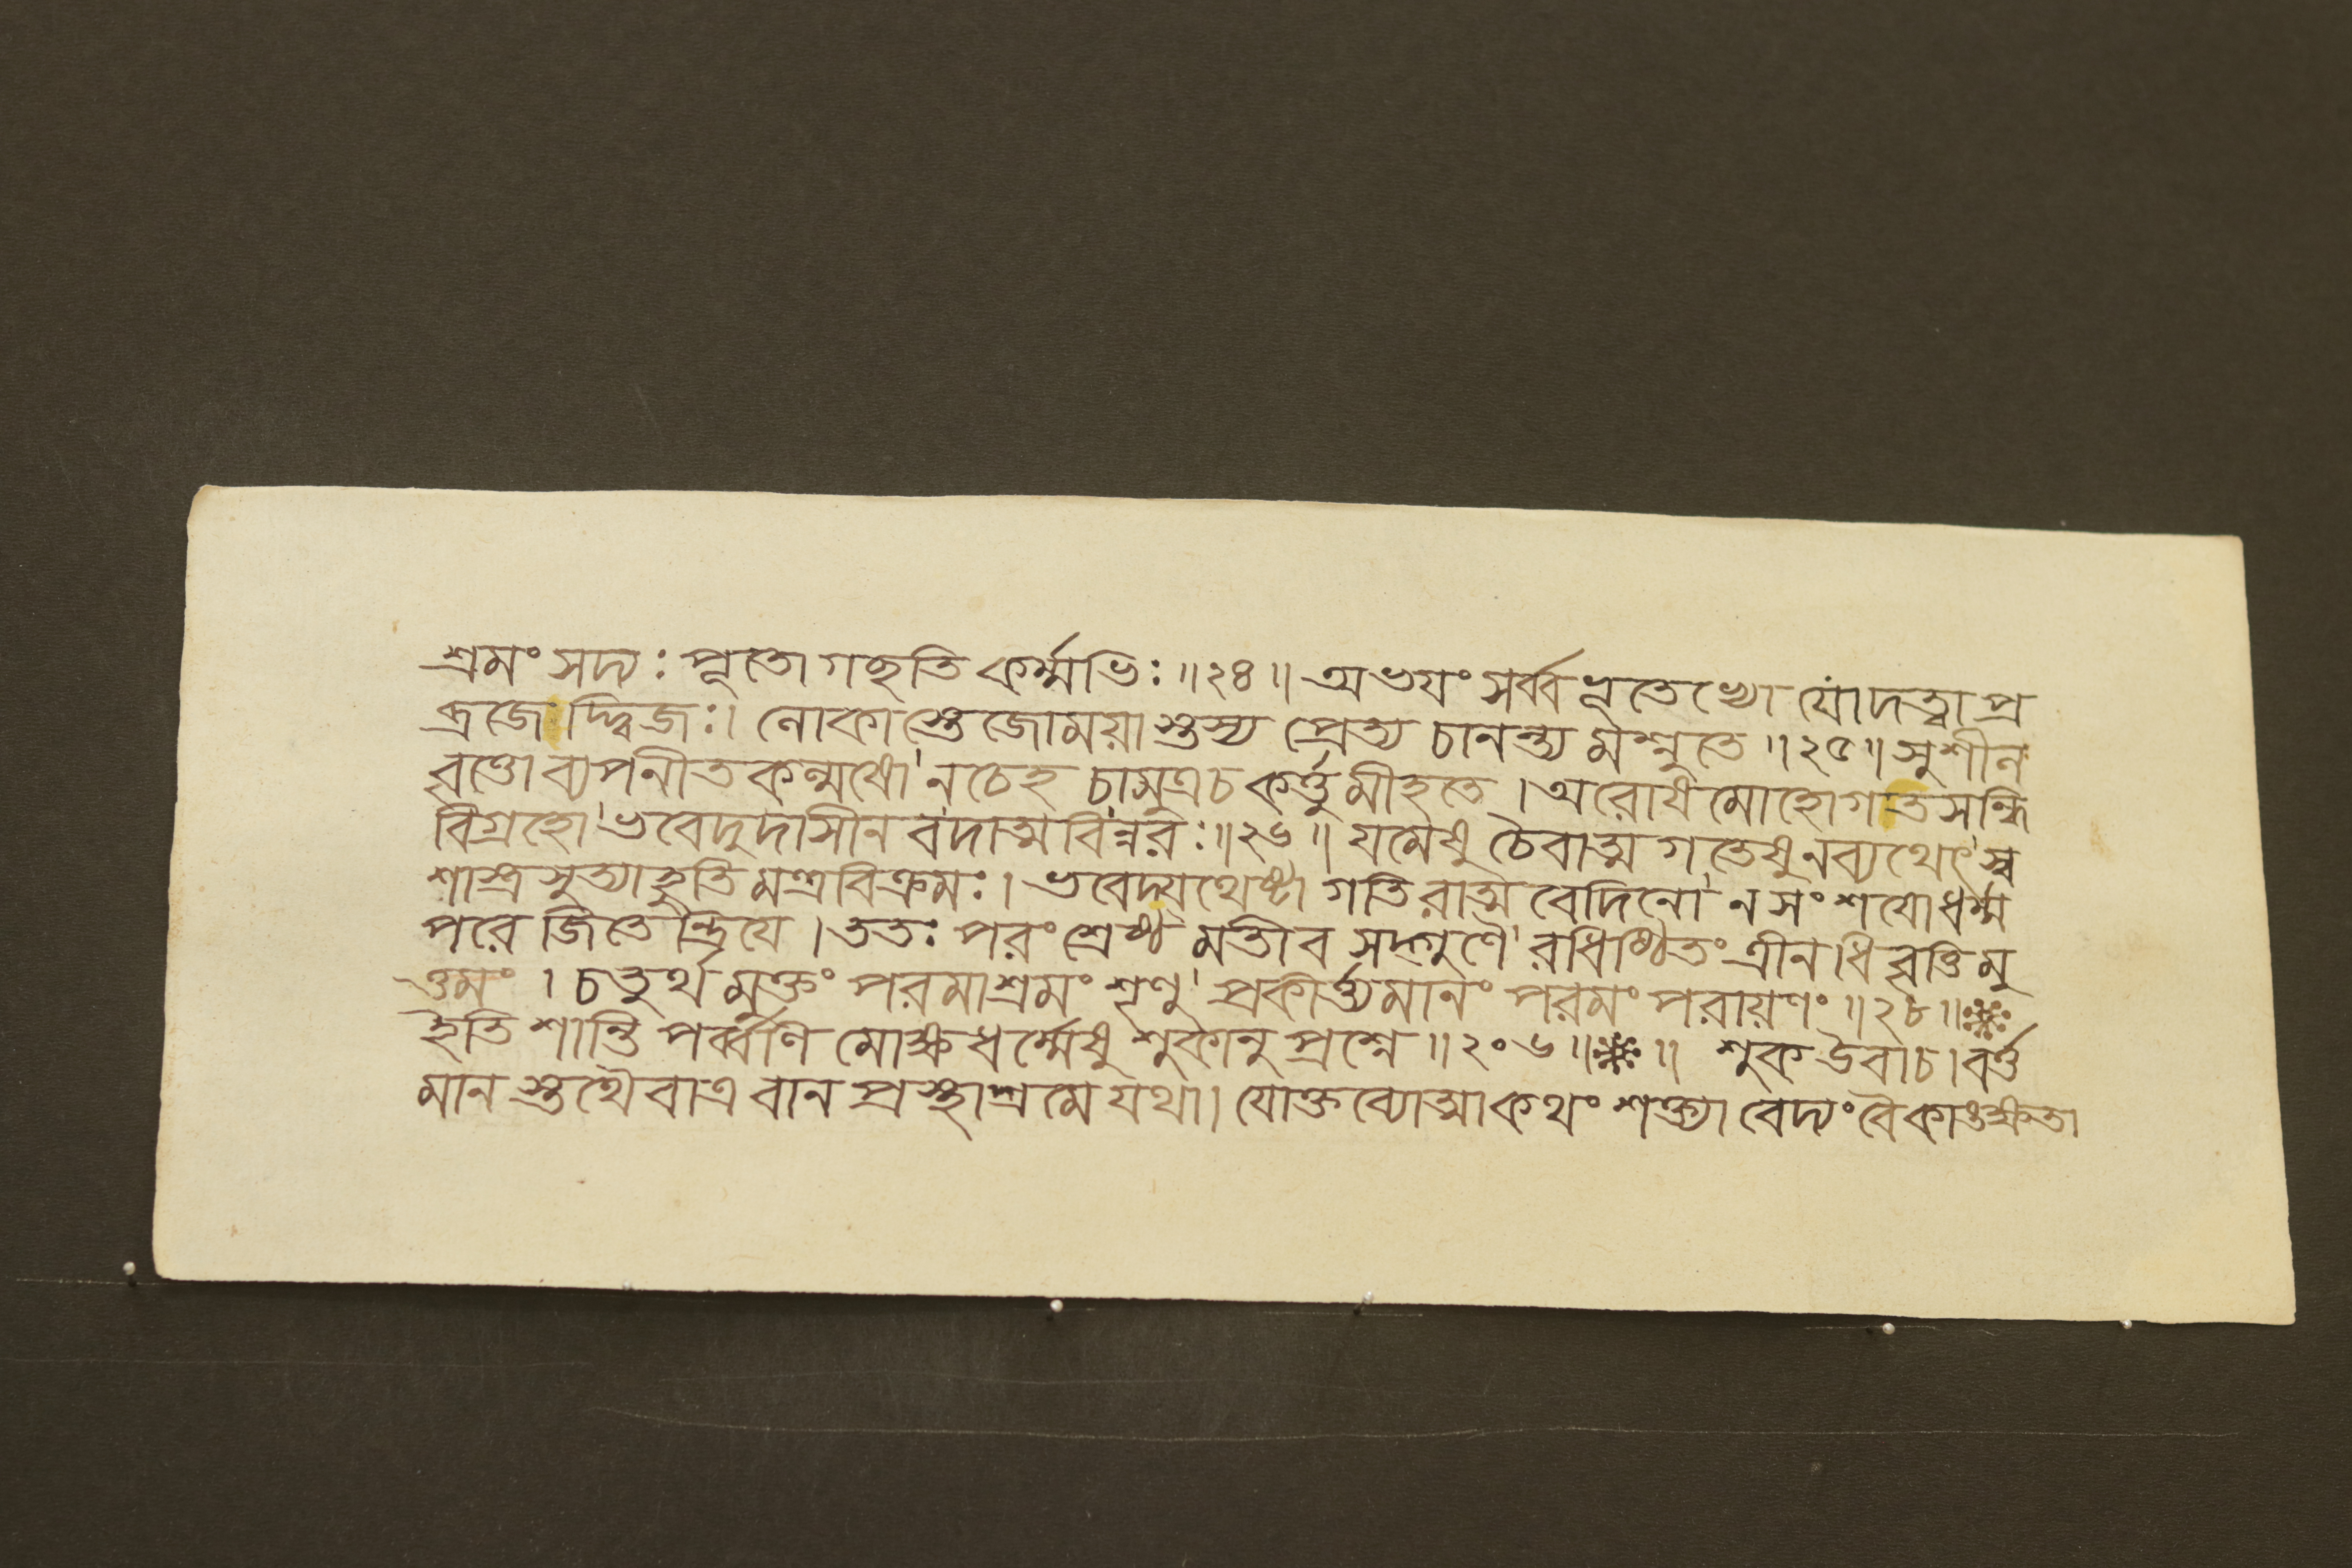 শ্রমং সদ্য: পূতো গচ্ছতি কর্ম্মভি: ॥২৪॥ অভযং সর্ব্বভূতেভ্যো যোদত্ত্বা প্র
ব্রজেদ্দ্বিজ:। লোকাস্তেজোময়াস্তস্য প্রেত্য চানন্ত্যমশ্নুতে ॥২৫॥ সুশীল
বৃত্তো ব্যপনীতকল্মষো'নচেহ চামুত্রচ কর্ত্তুমীহতে ।অরোষমোহোগতসন্ধি
বিগ্রহো'ভবেদুদাসীনবদাত্মবিন্নর:॥২৬॥ যমেষু চৈবাত্মগতেষুনব্যথেৎ'স্ব
শাস্ত্রসুত্যাহুতিমন্ত্রবিক্রম:। ভবেদ্যথেষ্টা গতিরাত্মবেদিনো'নসংশযোধর্ম্ম
পরে জিতেন্দ্রিযে ।তত: পরং শ্রেষ্ঠমতীব সদ্গুণৈ'রধিষ্ঠিতং ত্রীনধিবৃত্তিমু
ত্তমং । চতুর্থমুক্তং পরমাশ্রমং শৃণু' প্রকীর্ত্ত্যমানং পরমং পরায়ণং ॥২৮॥
ইতি শান্তিপর্ব্বণি মোক্ষধর্ম্মেষু শুকানুপ্রশ্নে ॥২০৬॥ ॥ শুক উবাচ।বর্ত্ত
মানস্তথৈবাত্র বানপ্রস্থাশ্রমে যথা। যোক্তব্যোত্মাকথং শক্ত্যা বেদ্যং বৈকাঙ্ক্ষতা